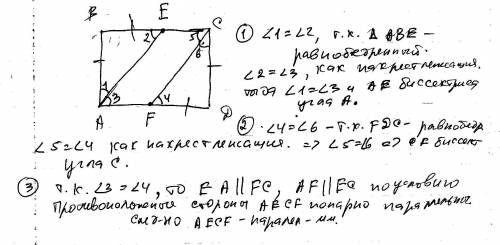 B E C
2 5 6
1 3 4
A F D
① ∠1=∠2, т.к. Δ ABE –
равнобедренный.
∠2=∠3, как накрестлежащия.
тогда ∠1=∠3 и AE биссектриса
угла A.
② ∠4=∠6 – т.к. FDC – равнобедр
∠5=∠4 как накрестлежащия. => ∠5=∠6 => CF биссект
угла C.
③ т.к. ∠3=∠4, то EA||FC, AF||EC по условию
Противоположные стороны AECF попарно параллельны
след-но AECF – паралел-мм.